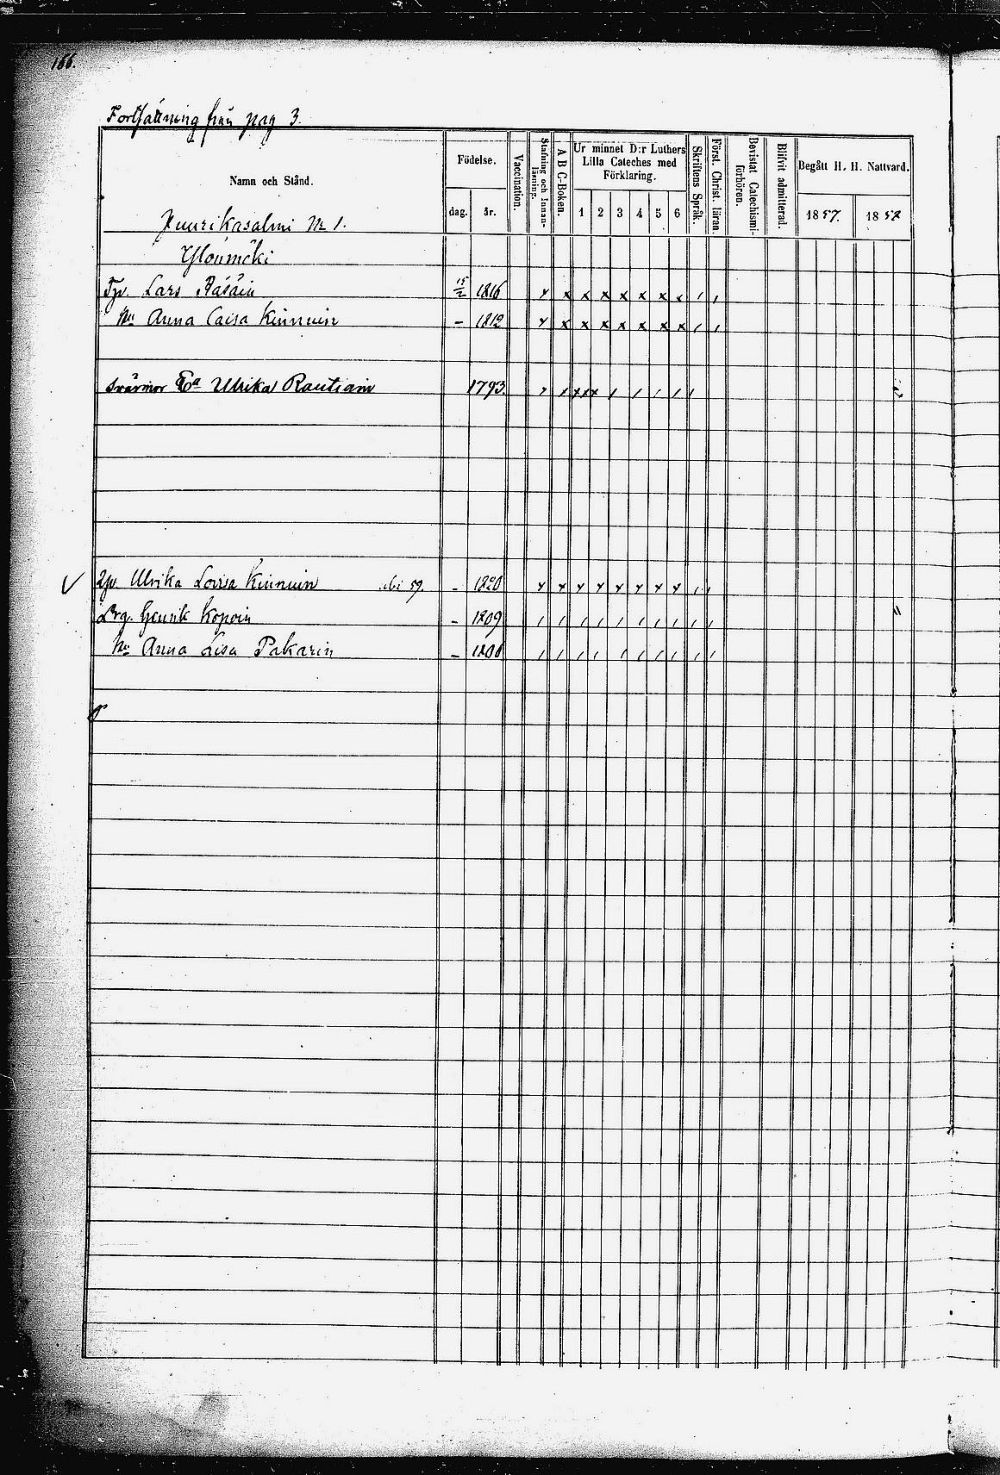 166.
Fortsättning från pag 3.
Namn och Stånd.
Födelse.
dag.
år.
Vaccination.
Stafning och Innanläsning.
A B C-Boken.
Ur minnet D:r Luthers Lilla Cateches med Förklaring.
1 2 3 4 5 6
Skriftens Språk.
Först. Christ. läran.
Bevistat Catechismiförhören.
Blifvit admitterad.
Begått H. H. Nattvard.
1857. 1858
Juurikasalmi No 1.
Ylönmäki
Lars Räsäin 15/2 1816 x x x x x x x x / /
Anna Caisa Kinnuin – 1812 x x x x x x x x / /
svärmor Ulrika Rautiain 1793.
Ulrika Lovisa Kinnuin 59. – 1820 x x x x x x x x / /
Henrik Kopoin – 1809 / / / / / / / / / /
Anna Lisa Pakarin – / / / / / / / / / /